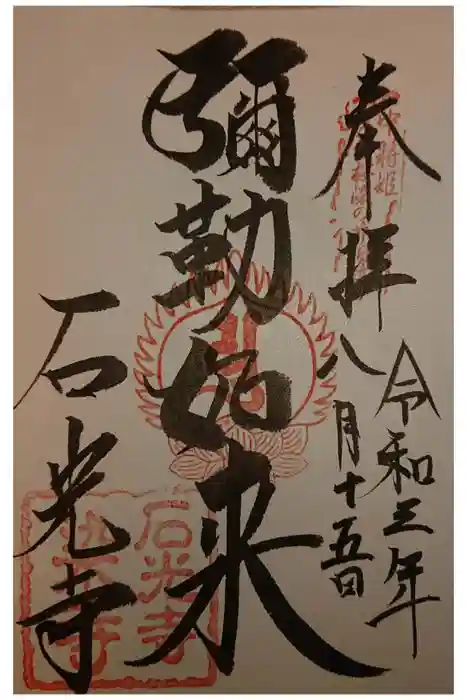 奉拝
令和三年
八月十五日
彌勒如来
石光寺
中将姫
石光寺